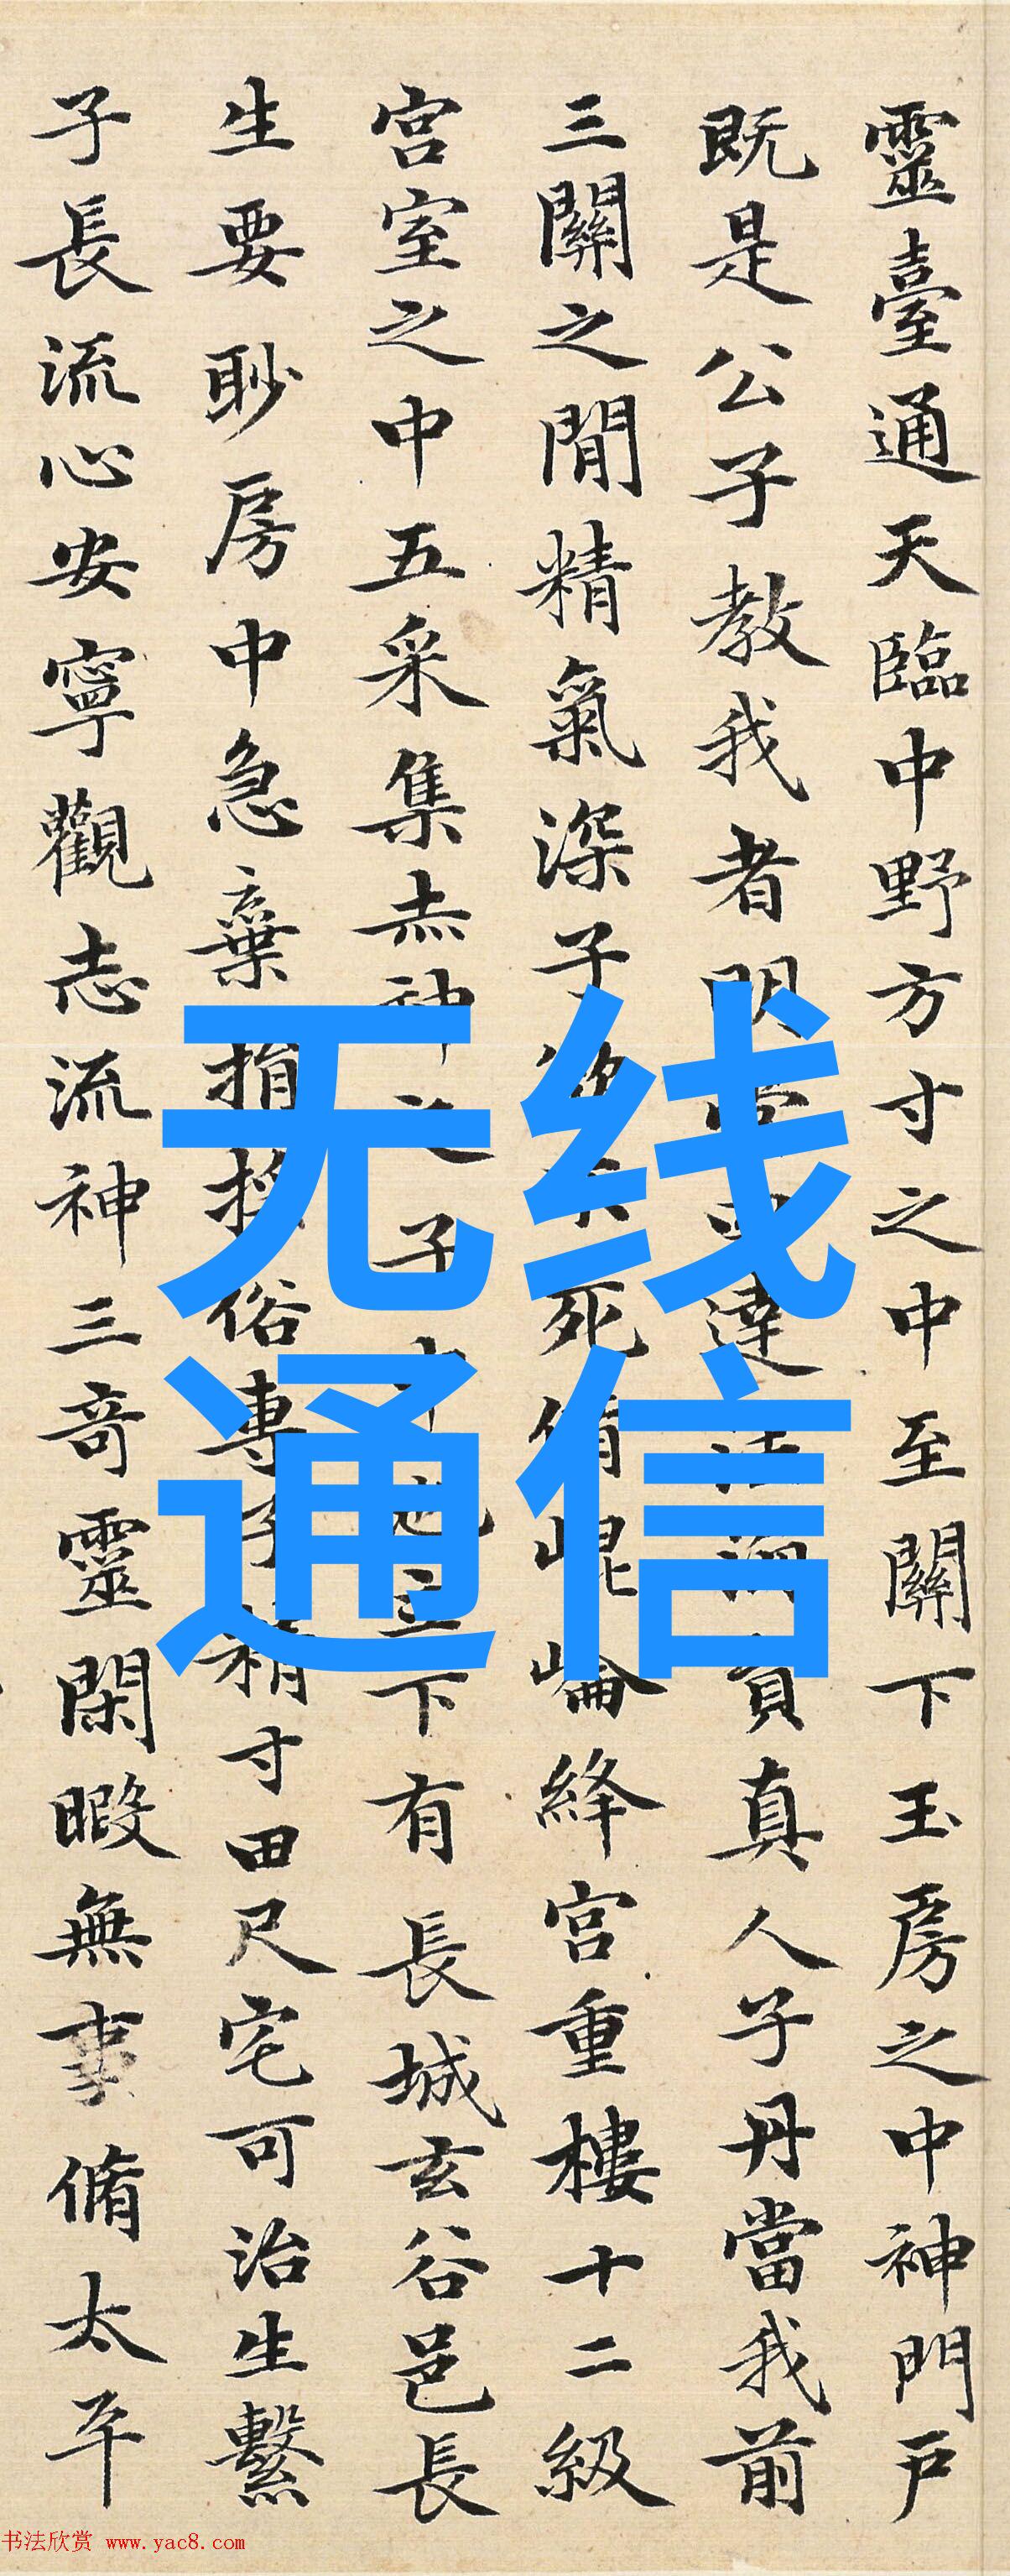 靈臺通天臨中野方寸之中至關下玉房之中神門戶
既是公子教我者明堂四達法海員真人子丹當我前
三關之閒精氣深子欲不死脩崐崘絳宮重樓十二級
宮室之中五采集赤神之子中池立下有長城玄谷邑長
生要眇房中急棄捐俗專子精寸田尺宅可治生繫
子長流心安寧觀志流神三奇靈閑暇無事脩太平
无线
通信
书法欣赏 www.yac8.com